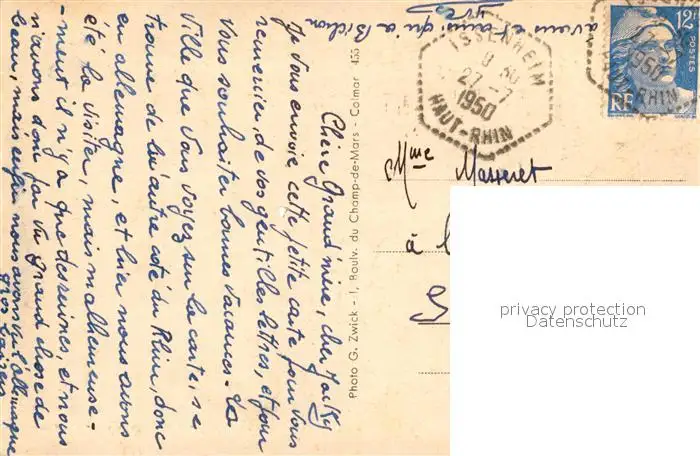 Chère Grand'mère, cher Jacky
Je vous envoie cette petite carte pour vous
remercier, de vos gentilles lettres, et pour
vous souhaiter bonnes vacances. La
ville que vous voyez sur la carte, se
trouve de l'autre coté du Rhin, donc
en allemagne, et hier nous avons
été la visiter, mais malheureuse-
-ment il n'y a que des ruines, et nous
n'avons donc pas vu grand chose de
beau, mais enfin nous avons vu l'allemagne
gros baisers
à vous et ainsi qu'à Bichon
Yves
Photo G. Zwick - 1, Boulv. du Champ-de-Mars - Colmar 153
ISSENHEIM
9 30
27 -7
1950
HAUT-RHIN
ISSENHEIM
1950
HAUT-RHIN
12F
POSTES
RF
Mme Masseret
à
privacy protection
Datenschutz